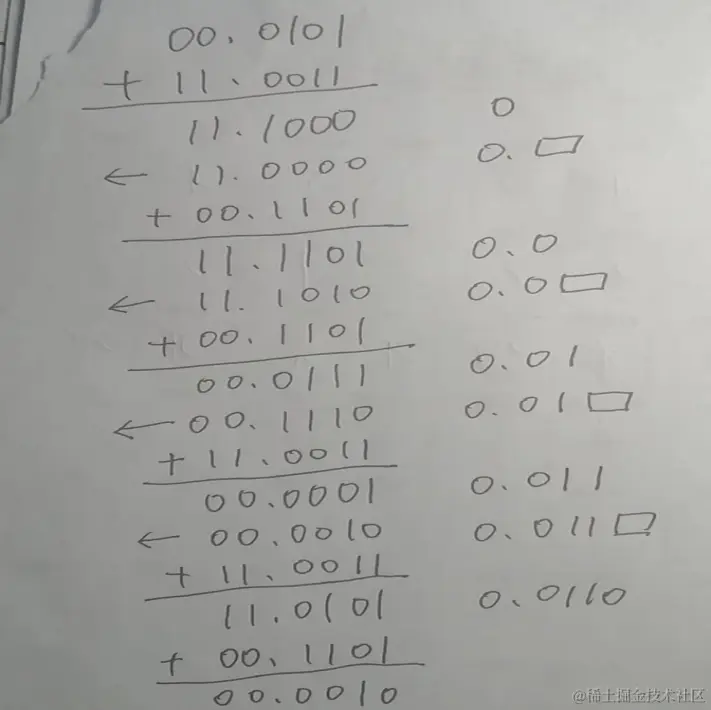 00.0101
+ 11.0011
11.1000 0
← 11.0000 0.▭
+ 00.1101
11.1101 0.0
← 11.1010 0.0▭
+ 00.1101
00.0111 0.01
← 00.1110 0.01▭
+ 11.0011
00.0001 0.011
← 00.0010 0.011▭
+ 11.0011
11.0101 0.0110
+ 00.1101
00.0010
@稀土掘金技术社区